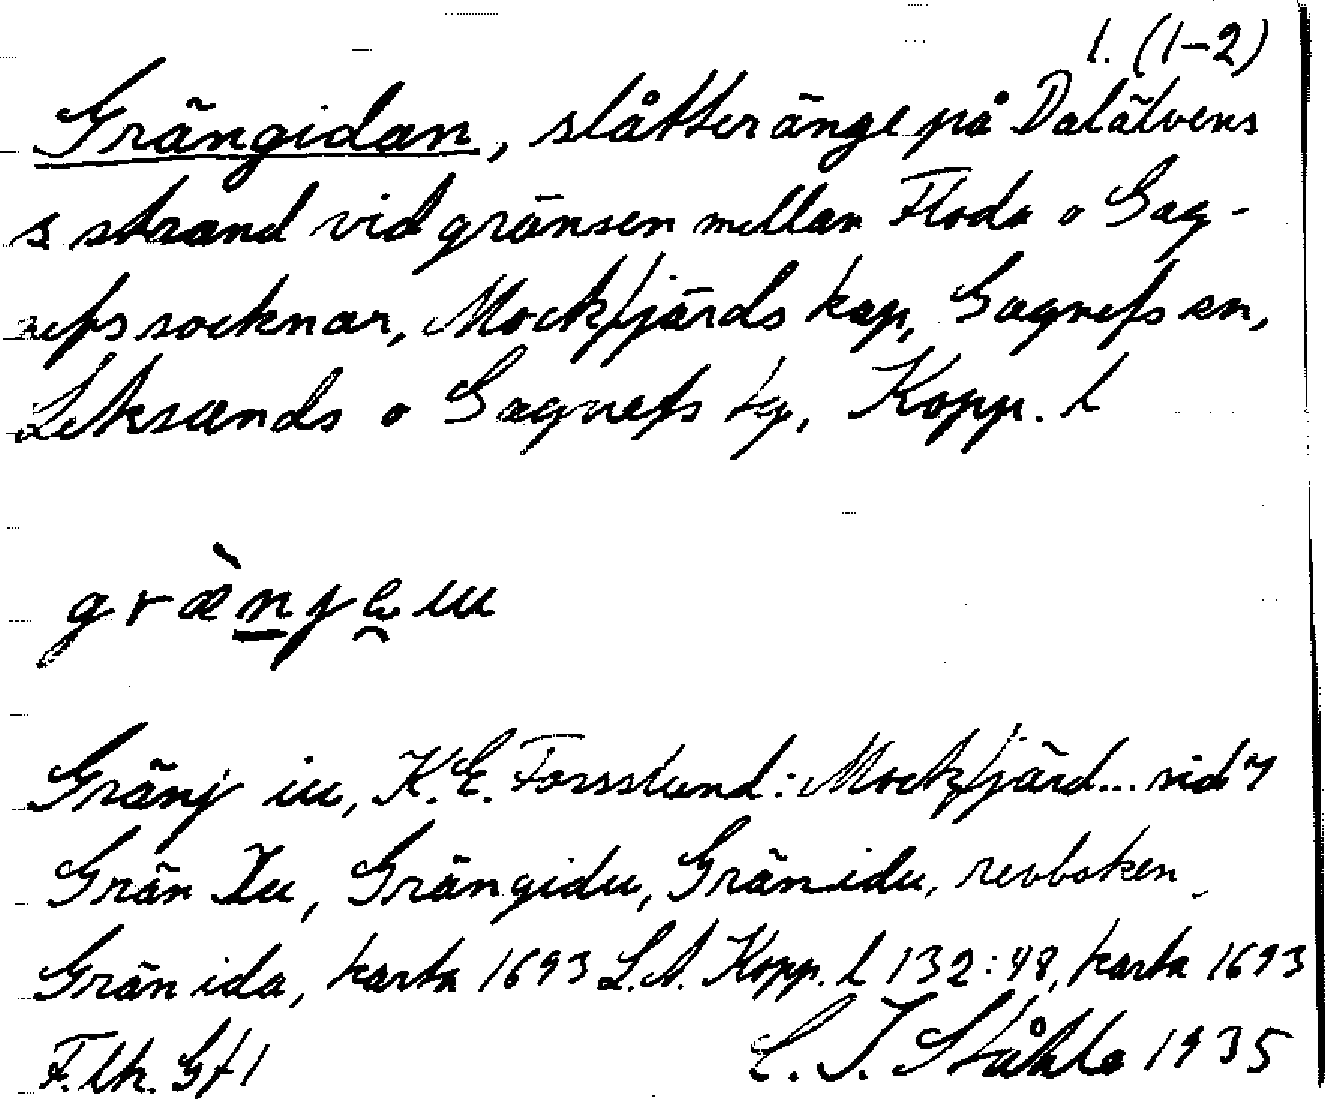 1. (1-2)
Grängidan, slåtteränge på Dalälvens
s strand vid gränsen mellan Floda o Gag-
nefs socknar, Mockfjärds kap, Gagnefs sn,
Leksands o Gagnefs tg, Kopp. l
Gränj iu, K.E. Forsslund: Mockfjärd... sid 7
Grän Iu, Grängidu, Gränidu, revboken
Gränida, karta 1693 L.A. Kopp. l 132:48, karta 1693
C. I. Ståhle 1935